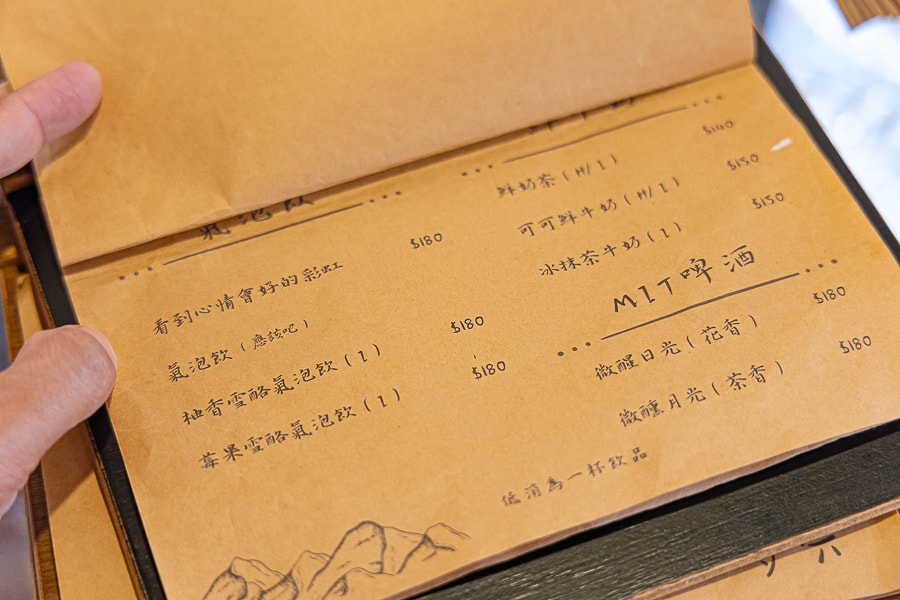 氣泡飲
看到心情會好的彩虹 $180
氣泡飲(應該吧)
柚香雪酪氣泡飲(I) $180
莓果雪酪氣泡飲(I) $180
鮮奶茶(H/I) $140
可可鮮牛奶(H/I) $150
冰抹茶牛奶(I) $150
MIT啤酒
微醒日光(花香) $180
微醺月光(茶香) $180
低消為一杯飲品